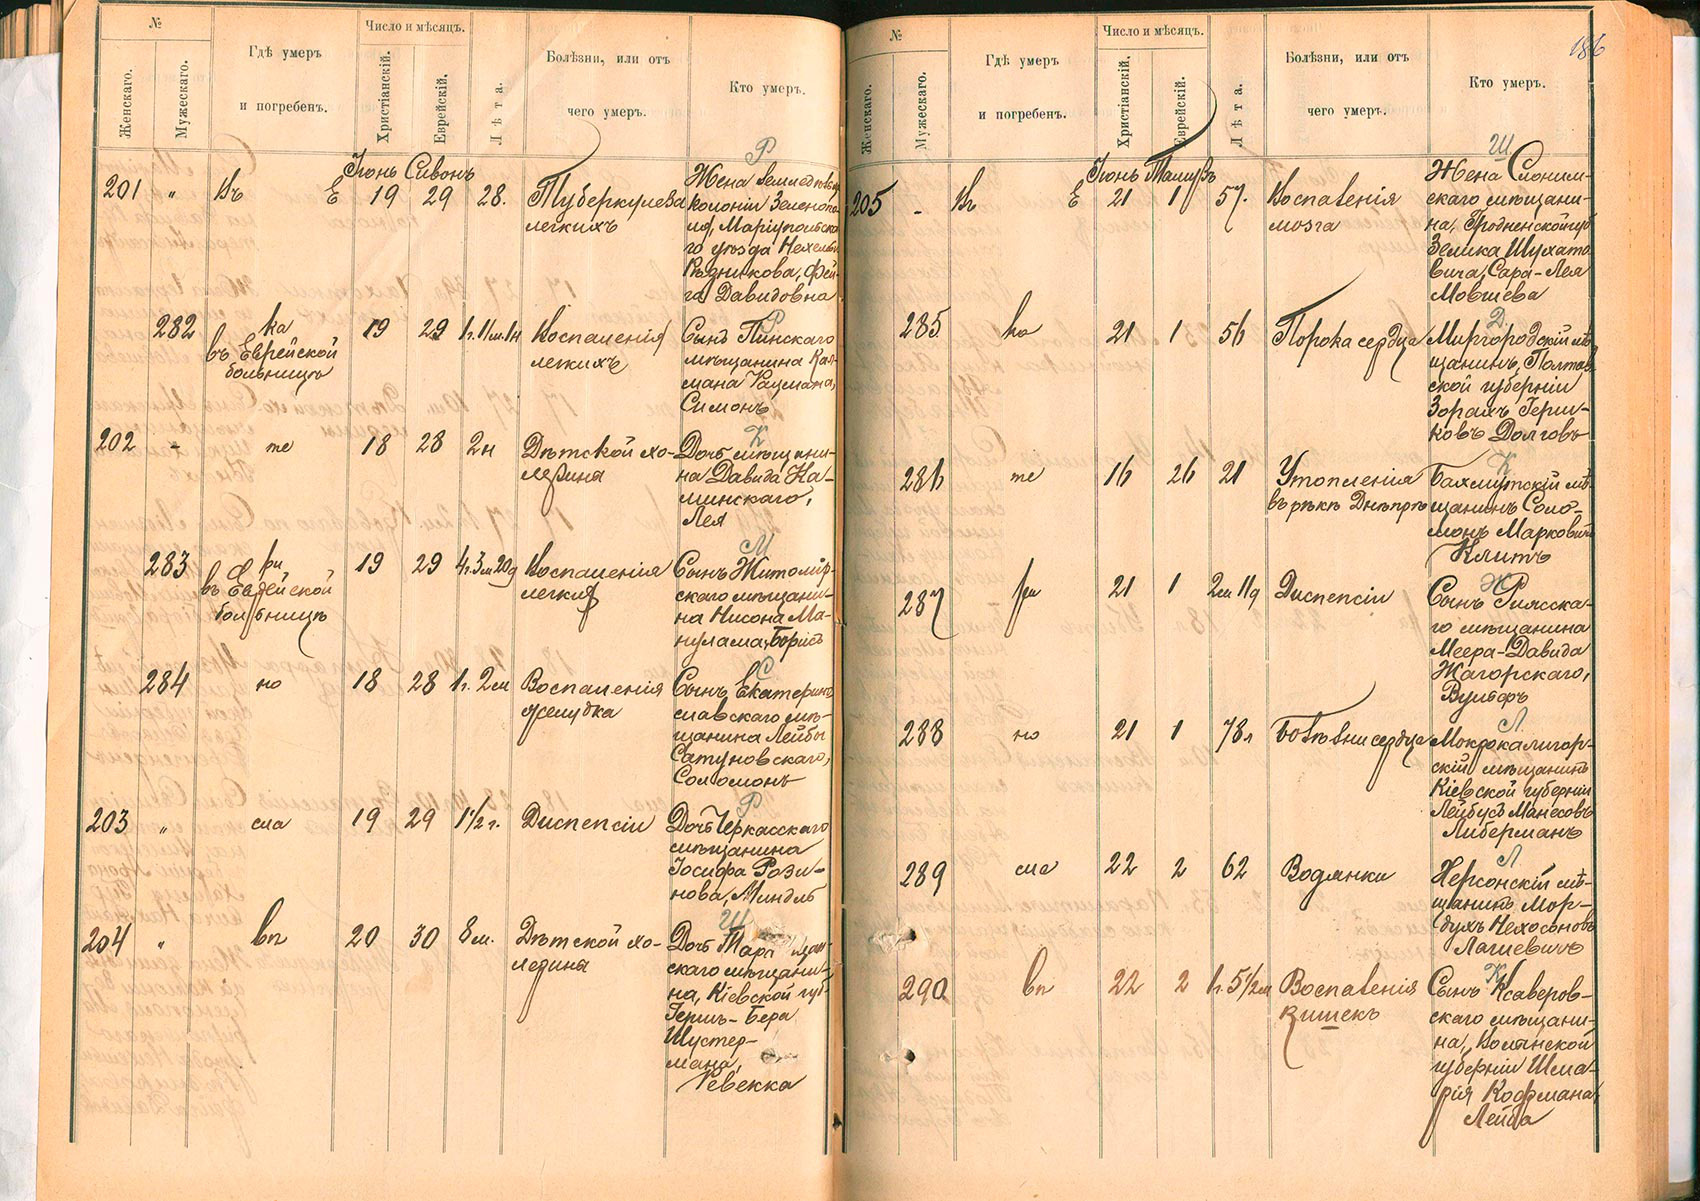 №
Женскаго.
Мужескаго.
Гдѣ умеръ
и погребенъ.
Число и мѣсяцъ.
Христіанскій.
Еврейскій.
Лѣта.
Болѣзни, или отъ
чего умеръ.
Кто умеръ.
Р
Іюнь Сивонъ
201 " Въ Е 19 29 28. Туберкулеза
легкихъ
Жена земледѣльца
колоніи Зеленопо-
ля, Маріупольска-
го уѣзда Нехемьи
Рѣзникова, Фей-
га Давидовна
Р
282 ка
въ Еврейской
больницѣ
19 29 1г. 11м. 1н Воспаленія
легкихъ
Сынъ Пинскаго
мѣщанина Кал-
мана
Симонъ
К
202 - те 18 28 2н Дѣтской хо-
лерина
Дочь мѣщани-
на Давида Ка-
минскаго,
Лея
М
283 ри
въ Еврейской
больницѣ
19 29 4г. 3м 20д Воспаленія
легких
Сынъ Житомир-
скаго мѣщани-
на Нисона Ма-
нулама, Борисъ
С
284 но 18 28 1г. 2м Воспаленія
желудка
Сынъ Екатерино
славскаго мѣ-
щанина Лейбы
Сатуновскаго,
Соломонъ
Р
203 " сла 19 29 1 1/2 г. Диспепсіи
Дочь Черкасскаго
мѣщанина
Іосифа Рози-
нова, Миндль
Ш
204 " вп 20 30 8 м. Дѣтской хо-
лерины
Дочь Таращан-
скаго мѣщани-
на, Кіевской губ-
Гершъ-Бера
Шустер-
мана,
Ревекка
186
№
Женскаго.
Мужескаго.
Гдѣ умеръ
и погребенъ.
Число и мѣсяцъ.
Христіанскій.
Еврейскій.
Лѣта.
Болѣзни, или отъ
чего умеръ.
Кто умеръ.
Ш
Іюнь Тамузъ
205 - Въ Е 21 1 57. Воспаленія
мозга
Жена Слоним-
скаго мѣщани-
на, Гродненской губ
Зелика Шухато
вича, Сара-Лея
Мовшева
Д
285 ка 21 1 56 Порока сердца
Миргородскій мѣ
щанинъ, Полтав
ской губерніи
Зорахъ Герш-
ковъ Долговъ
К
286 те 16 26 21 Утопленія
въ рѣкѣ Днѣпрѣ
Бахмутскій мѣ
щанинъ Соло-
монъ Марковичъ
Клитъ
Ж
287 ри 21 1 2м 11д Диспепсіи
Сынъ Ряжска-
го мѣщанина
Меера-Давида
Жагорскаго,
Вульфъ
Л
288 но 21 1 78л Болѣзни сердца
Мокрокалигор-
скій мѣщанинъ
Кіевской губерніи
Лейбусъ Манесовъ
Либерманъ
Л
289 сла 22 2 62 Водянки
Херсонскій мѣ-
щанинъ Мор-
духъ Нехосоновъ
Лашевичъ
К
290 вп 22 2 1г. 5 1/2м Воспаленія
кишекъ
Сынъ Ксаверов-
скаго мѣщани-
на, Волынской
губерніи Шма-
рія Кофмана
Лейба